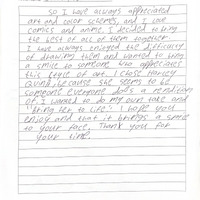 So I have always appreciated
art and color schemes, and I love
comics and anime. I decided to bring
the best of all of them together.
I have always enjoyed the difficulty
of drawing them and wanted to bring
a smile to someone who appreciates
this style of art. I chose Harley
Quinn, because she seems to be
someone everyone does a rendition
of. I wanted to do my own take and
"bring her to life". I hope you
enjoy and that it brings a smile
to your face. Thank you for
your time.